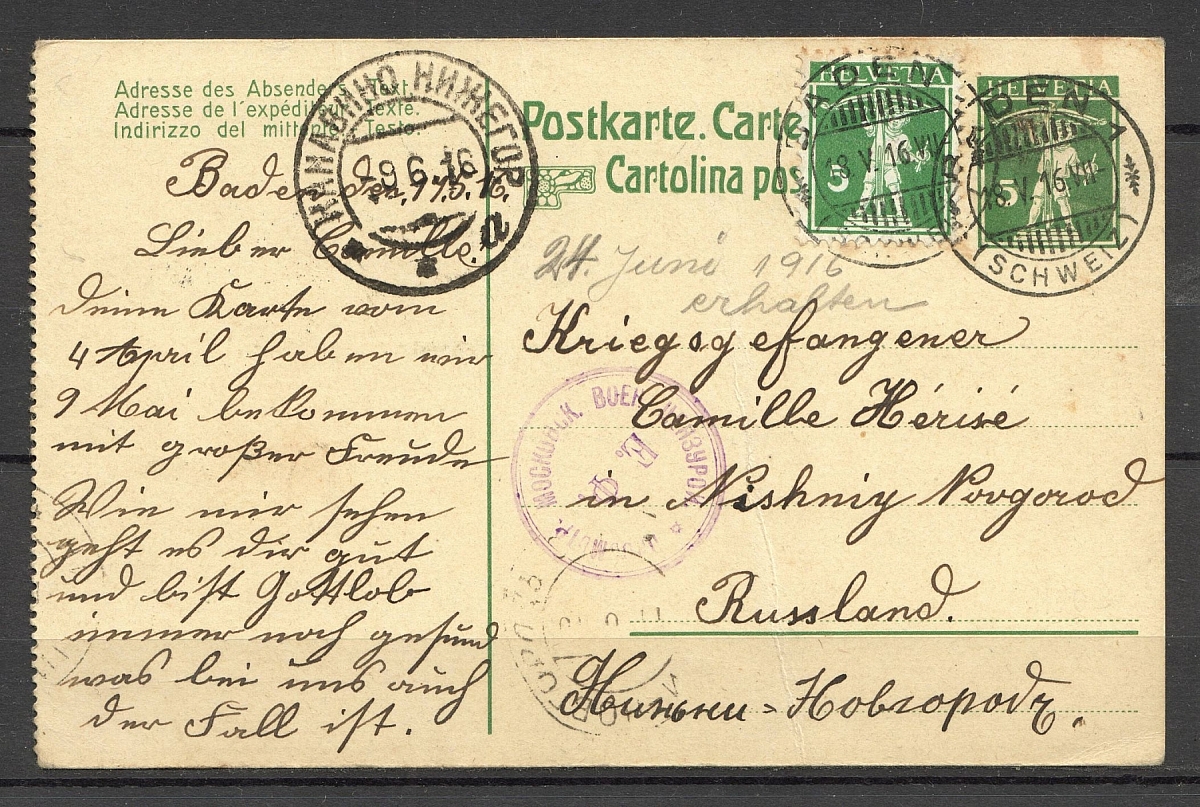 Adresse des Absenders. Text.
Adresse de l'expéditeur. Texte.
Indirizzo del mittente. Testo.
Baden, den 17.5.16.
Lieber Camille.
Deine Karte vom
4 April haben wir
9 Mai bekommen
mit großer Freude
Wie wir sehen
geht es dir gut
und bist Gottlob
immer noch gesund
was bei uns auch
der Fall ist.
КАНАВИНО НИЖЕГОР.
6.16
Postkarte. Carte
Cartolina pos
HELVETIA
5
BADEN
18.V.16.VII
HELVETIA
5
BADEN 1
18.V.16.VII
(SCHWEIZ)
24. Juni 1916
erhalten
Kriegsgefangener
Camille Hérisé
in Nishniy Novgorod
Russland.
Нижни-Новгородъ.
МОСКОВСК. ВОЕН. ЦЕНЗУРОЙ